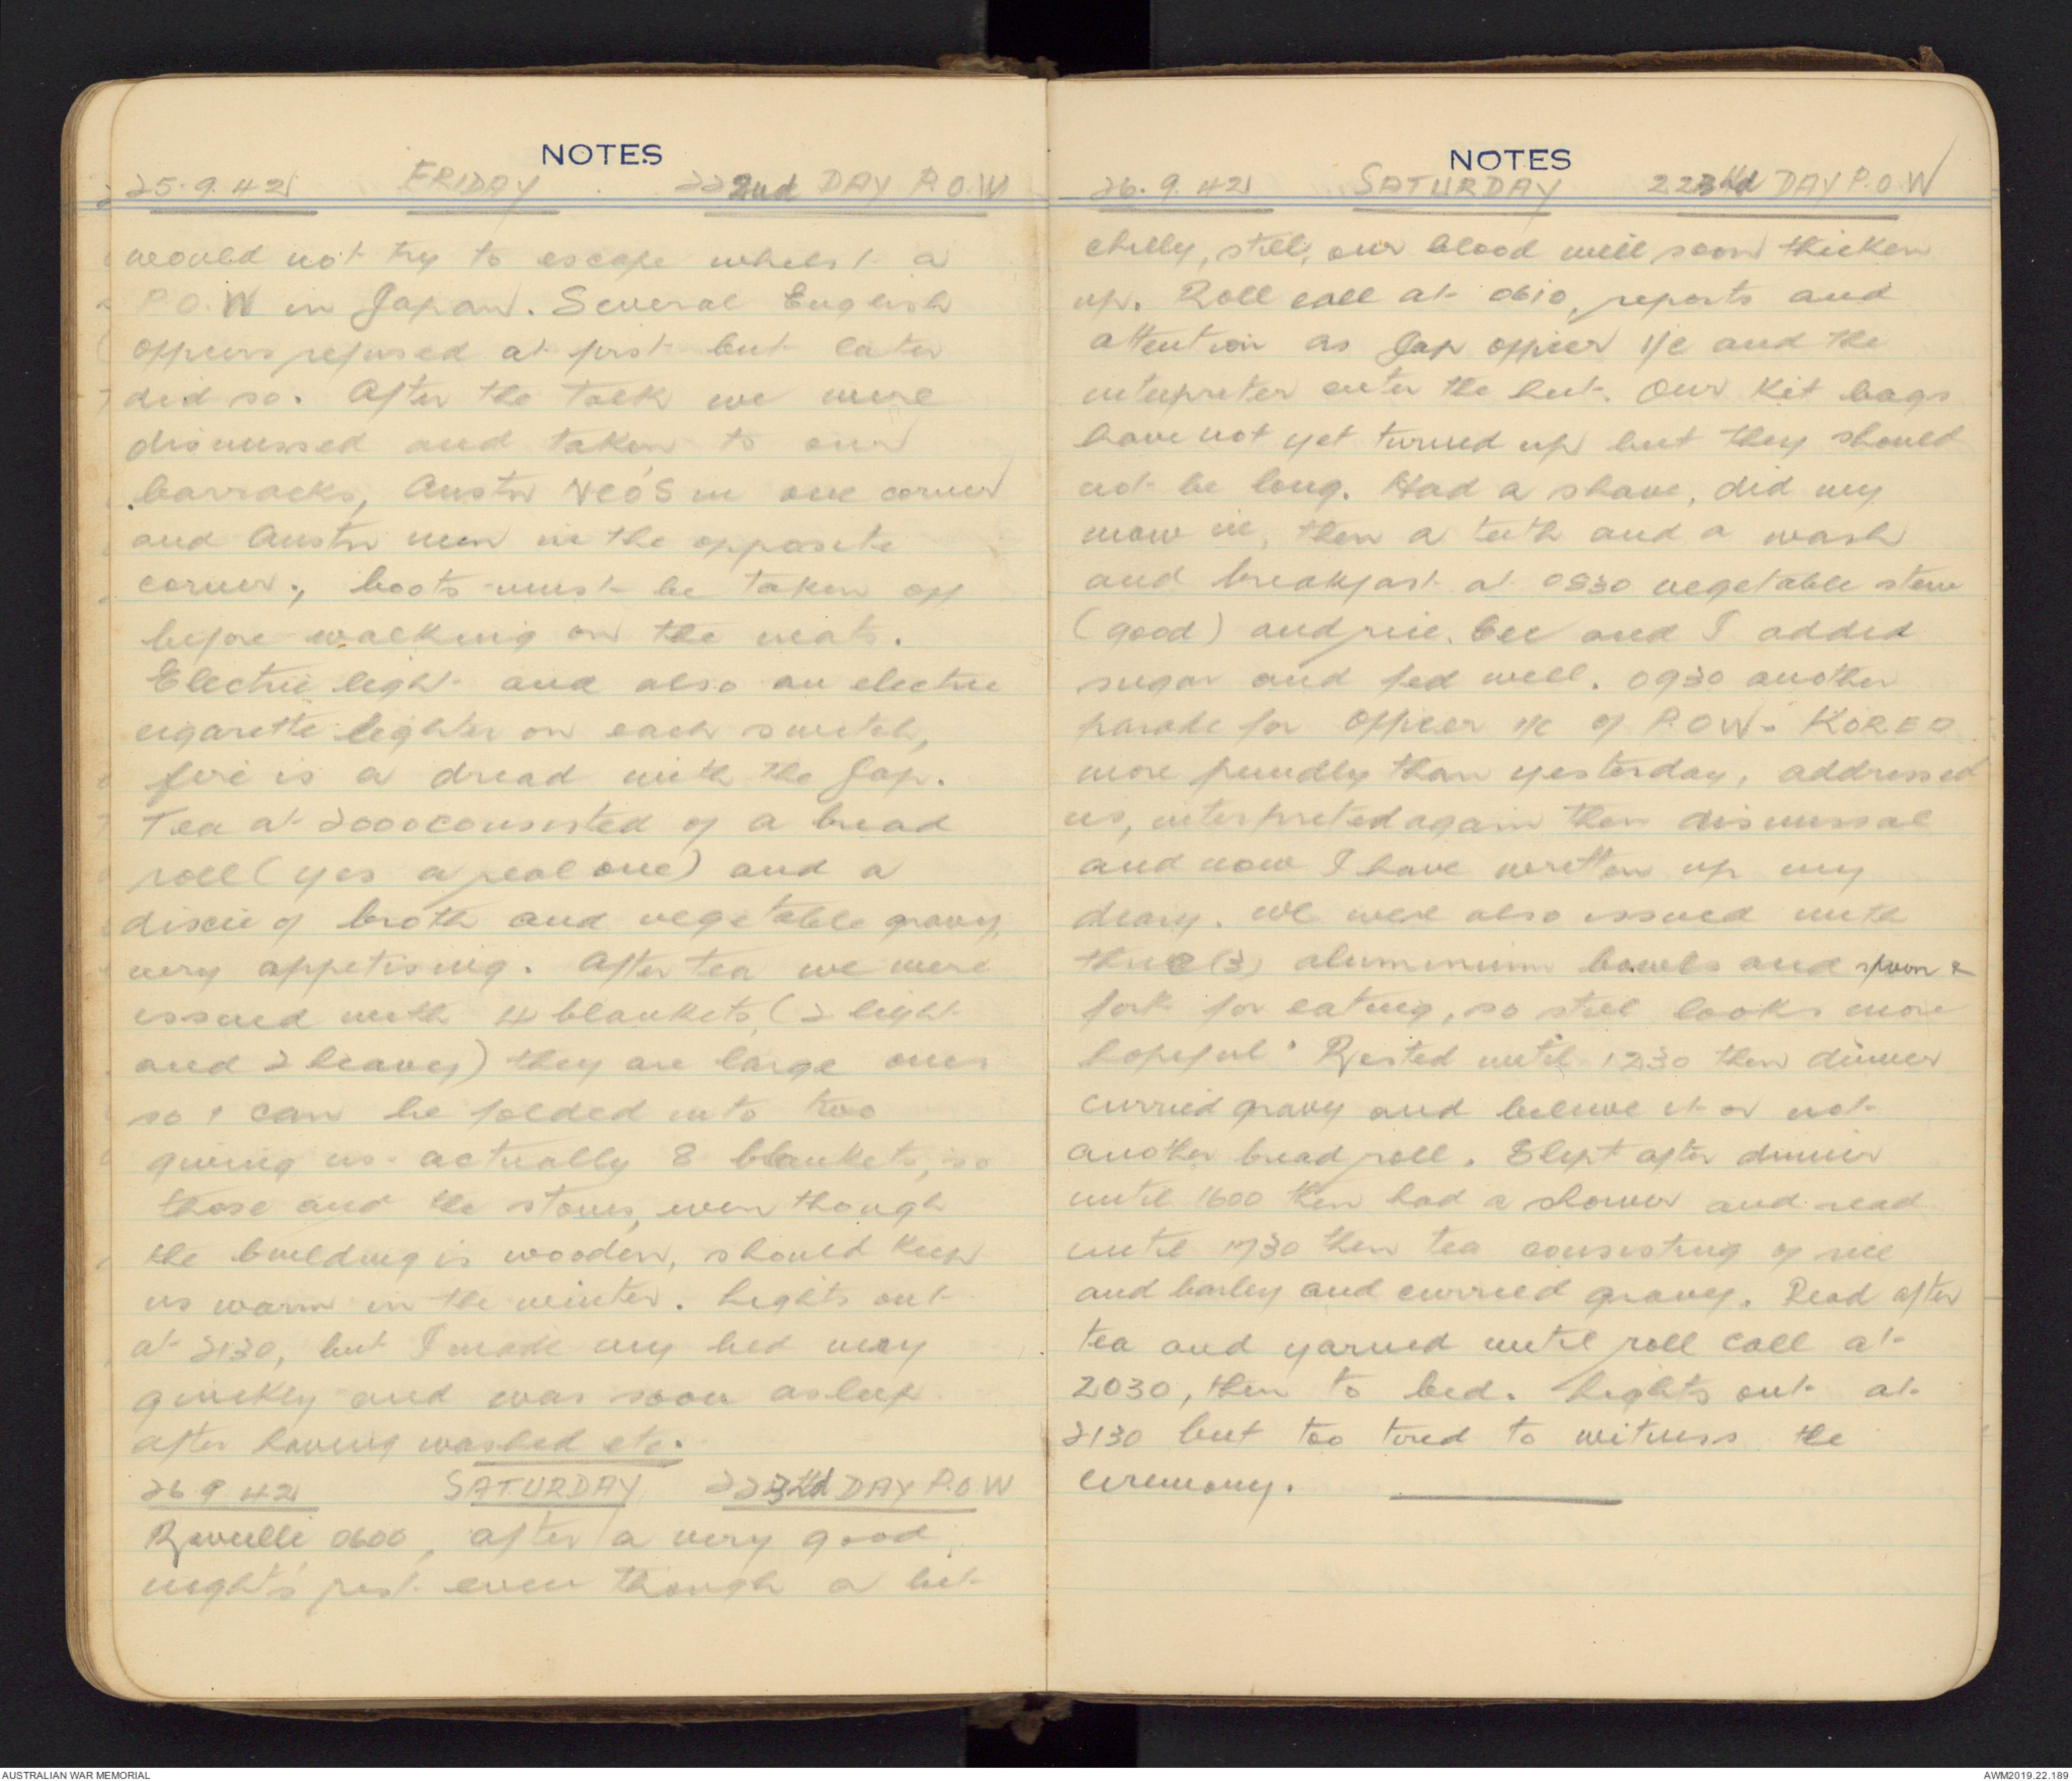 NOTES
25.9.42 FRIDAY 222nd DAY P.O.W
would not try to escape whilst a
P.O.W in Japan. Several English
officers refused at first but later
did so. After the talk we were
dismissed and taken to our
barracks, Austn NCO'S in one corner
and Austn men in the opposite
corner., boots must be taken off
before walking on the mats.
Electric light and also an electric
cigarette lighter on each switch,
fire is a dread with the Jap.
Tea at 2000 consisted of a bread
roll (yes a real one) and a
discie of broth and vegetable gravy,
very appetising. After tea we were
issued with 4 blankets (2 light
and 2 heavy) they are large ones
so 1 can be folded into two
giving us actually 8 blankets, so
those and the stoves, even though
the building is wooden, should keep
us warm in the winter. Lights out
at 2130, but I made my bed very
quickly and was soon asleep
after having washed etc.
26.9.42 SATURDAY 223rd DAY P.O.W
Reveille 0600, after a very good
night's rest even though a bit
NOTES
26.9.42 SATURDAY 223rd DAY P.O.W
chilly, still, our blood will soon thicken
up. Roll call at 0610, reports and
attention as Jap officer i/c and the
interpreter enter the hut. Our Kit bags
have not yet turned up but they should
not be long. Had a shave, did my
then a teeth and a wash
and breakfast at 0830 vegetable stew
(good) and rice. Cec and I added
sugar and fed well. 0930 another
parade for Officer i/c of P.O.W- KOREA
more friendly than yesterday, addressed
us, interpreted again then dismissal
and now I have written up my
diary. We were also issued with
three (3) aluminium bowls and spoon &
fork for eating, so still looks more
hopeful. Rested until 1230 then dinner
curried gravy and believe it or not
another bread roll. Slept after dinner
until 1600 then had a shower and read
until 1730 then tea consisting of rice
and barley and curried gravy. Read after
tea and yarned until roll call at
2030, then to bed. Lights out at
2130 but too tired to witness the
ceremony.
AUSTRALIAN WAR MEMORIAL
AWM2019.22.189